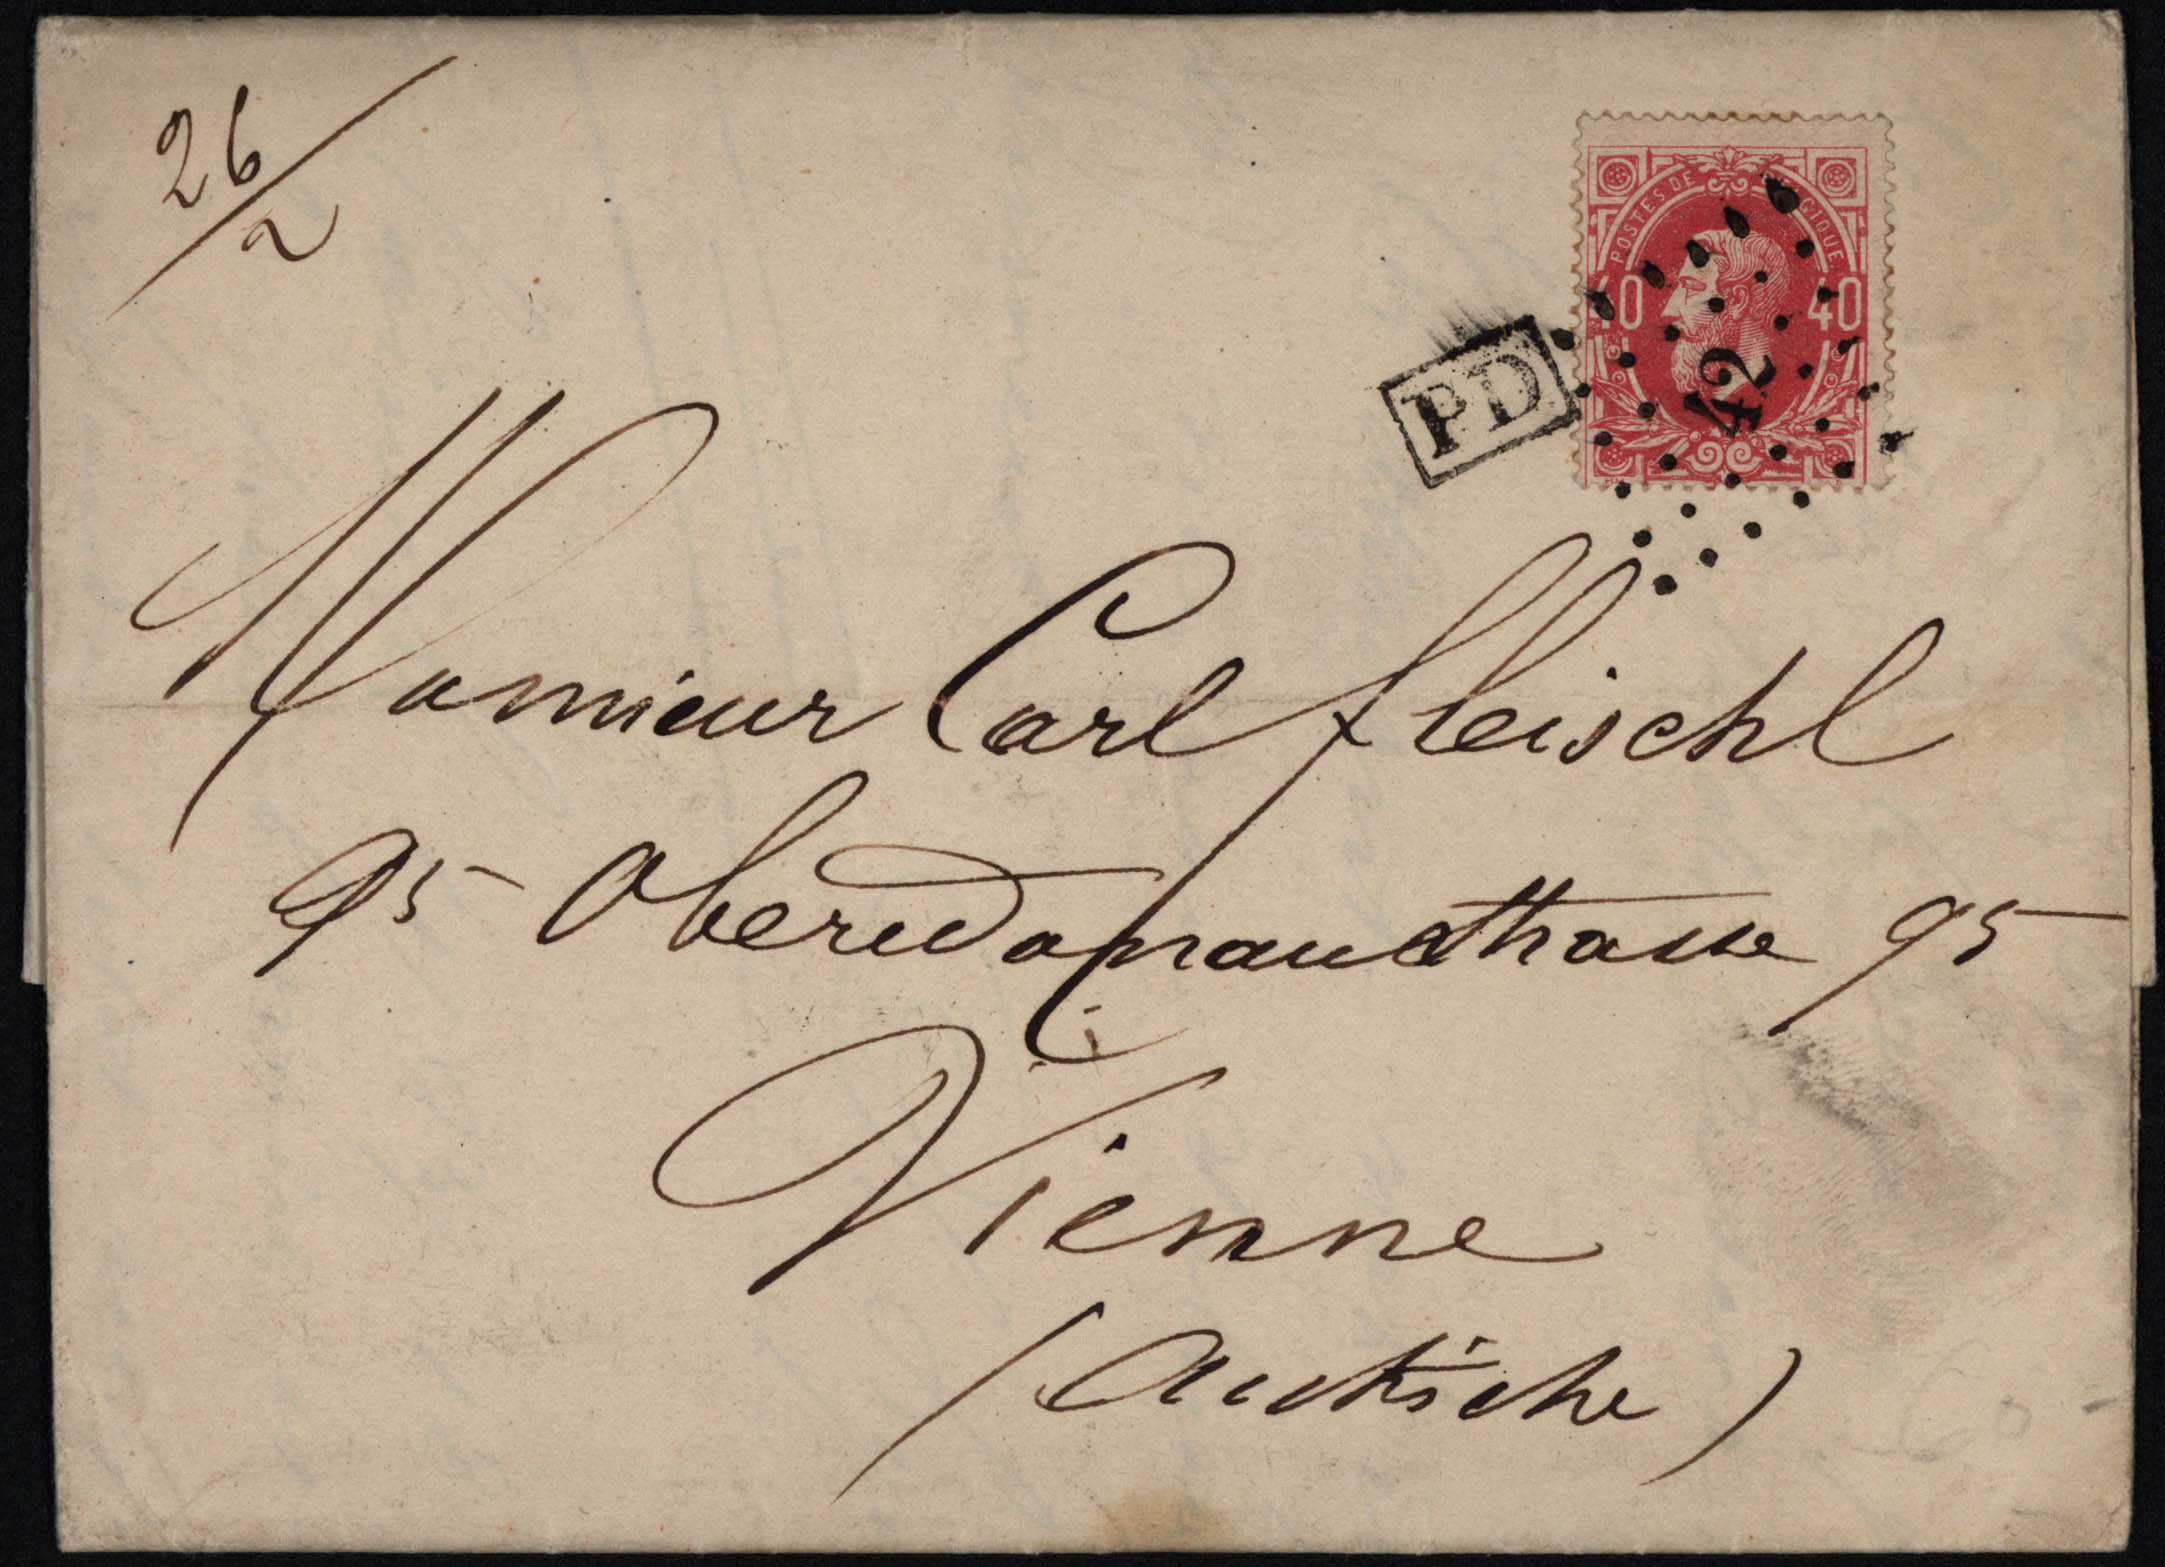 26/2
POSTES DE BELGIQUE
40 40
42
PD
Monsieur Carl Fleischl
95 Oberedonaustrasse 95
Vienne
(Autriche)